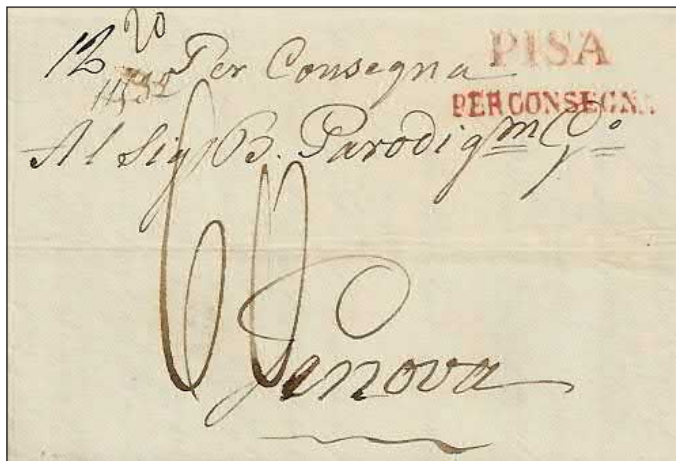 12 20 Per Consegna PISA
PER CONSEGN
Al Sig B. Parodi qm Go
60
Genova